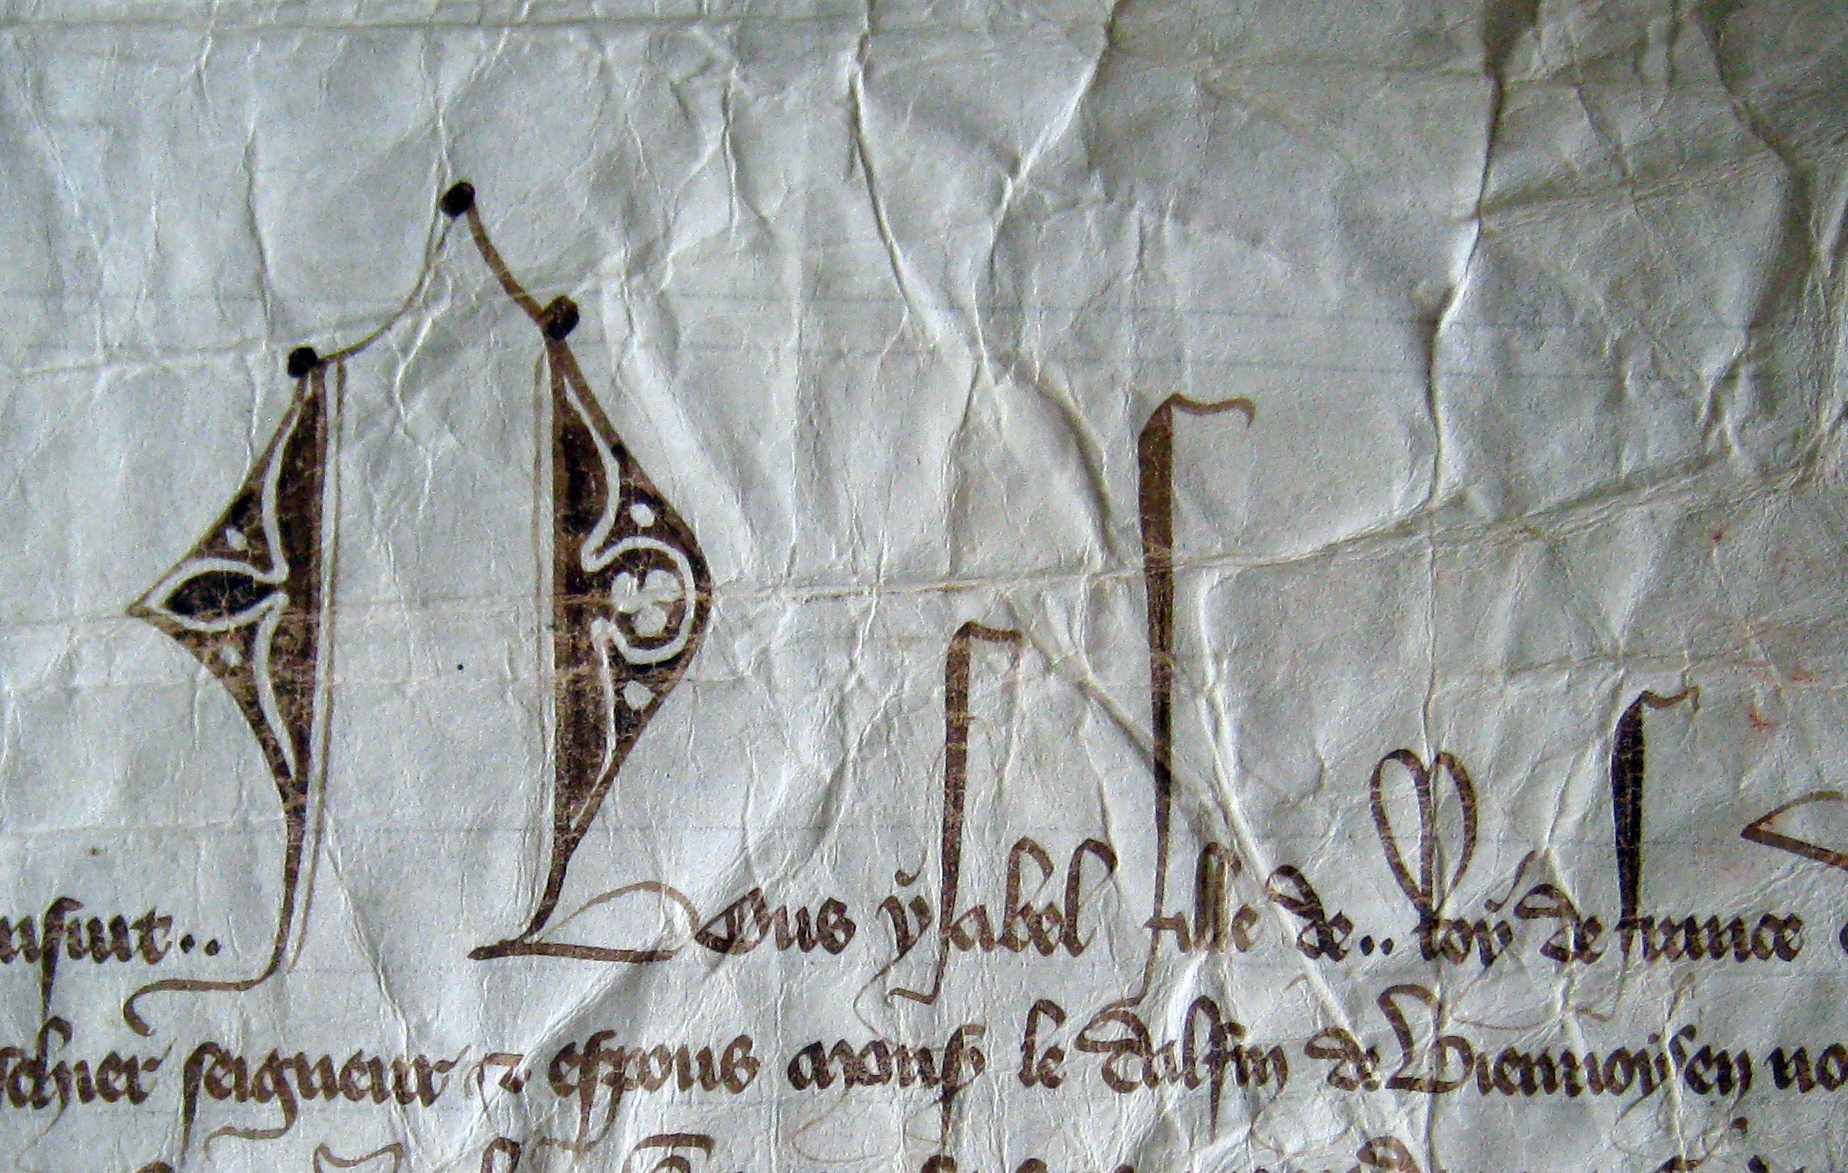 Nous ysabel fille de.. Roy de france
chier seigneur & espous mons le dalfin de Viennoys en no